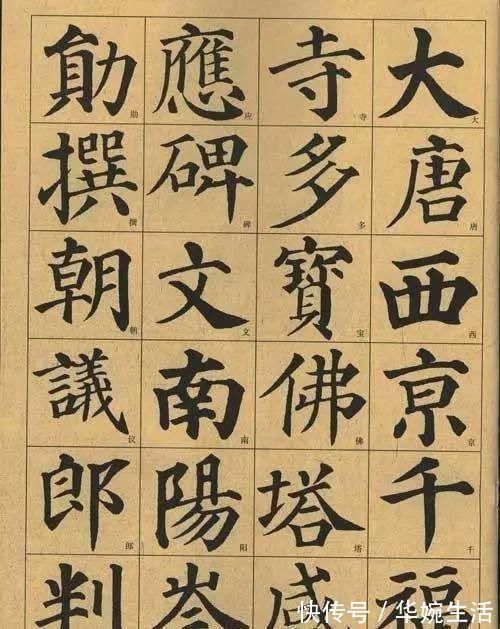 大唐西亰千福
寺多寶佛塔感
應碑文南陽岑
勛撰朝議郎判
大唐西京千
寺多宝佛塔
应碑文南阳
勋撰朝议郎
快传号 / 华婉生活